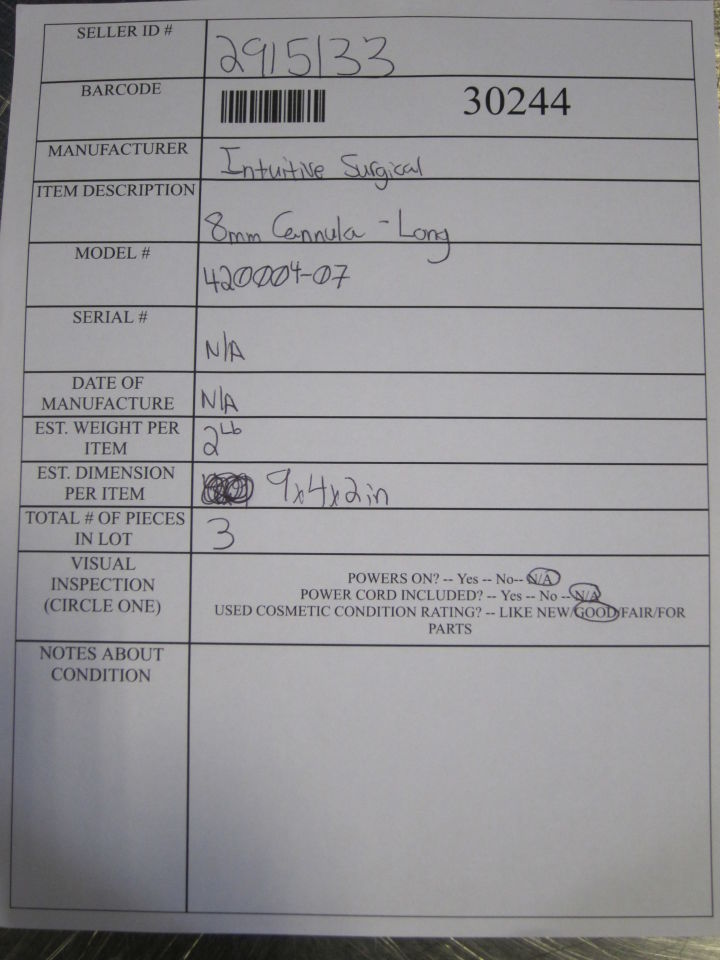 SELLER ID #
2915133
BARCODE
30244
MANUFACTURER
Intuitive Surgical
ITEM DESCRIPTION
8mm Cannula - Long
MODEL #
420004-07
SERIAL #
N/A
DATE OF
MANUFACTURE
N/A
EST. WEIGHT PER
ITEM
2 Lb
EST. DIMENSION
PER ITEM
9x4x2in
TOTAL # OF PIECES
IN LOT
3
VISUAL
INSPECTION
(CIRCLE ONE)
POWERS ON? -- Yes -- No-- N/A
POWER CORD INCLUDED? -- Yes -- No -- N/A
USED COSMETIC CONDITION RATING? -- LIKE NEW/GOOD/FAIR/FOR
PARTS
NOTES ABOUT
CONDITION